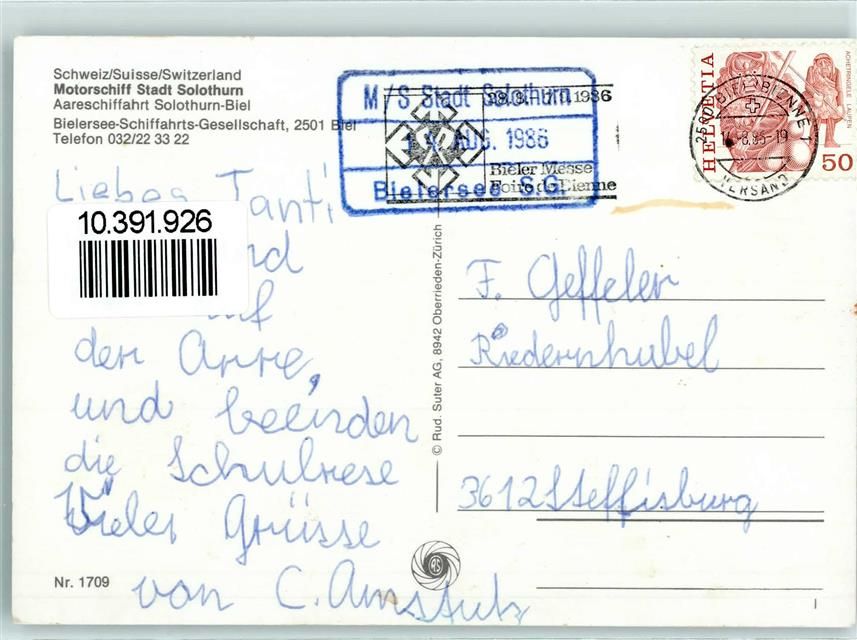 Schweiz/Suisse/Switzerland
Motorschiff Stadt Solothurn
Aareschiffahrt Solothurn-Biel
Bielersee-Schiffahrts-Gesellschaft, 2501 Biel
Telefon 032/22 33 22
M/S Stadt Solothurn
14. AUG. 1986
Bielersee S.G.
1986
Bieler Messe
Foire de Bienne
HELVETIA
ACHETRINGELE LAUPEN
50
2500 BIEL-BIENNE 1
14-8.86-19
VERSAND
Liebes Tanti
10.391.926
nd
auf
der Arre,
und beenden
die Schulrese
Vieler Grüsse
von C. Amstutz
© Rud. Suter AG, 8942 Oberrieden-Zürich
F. Geffeler
Riedernhubel
3612 Steffisburg
Nr. 1709